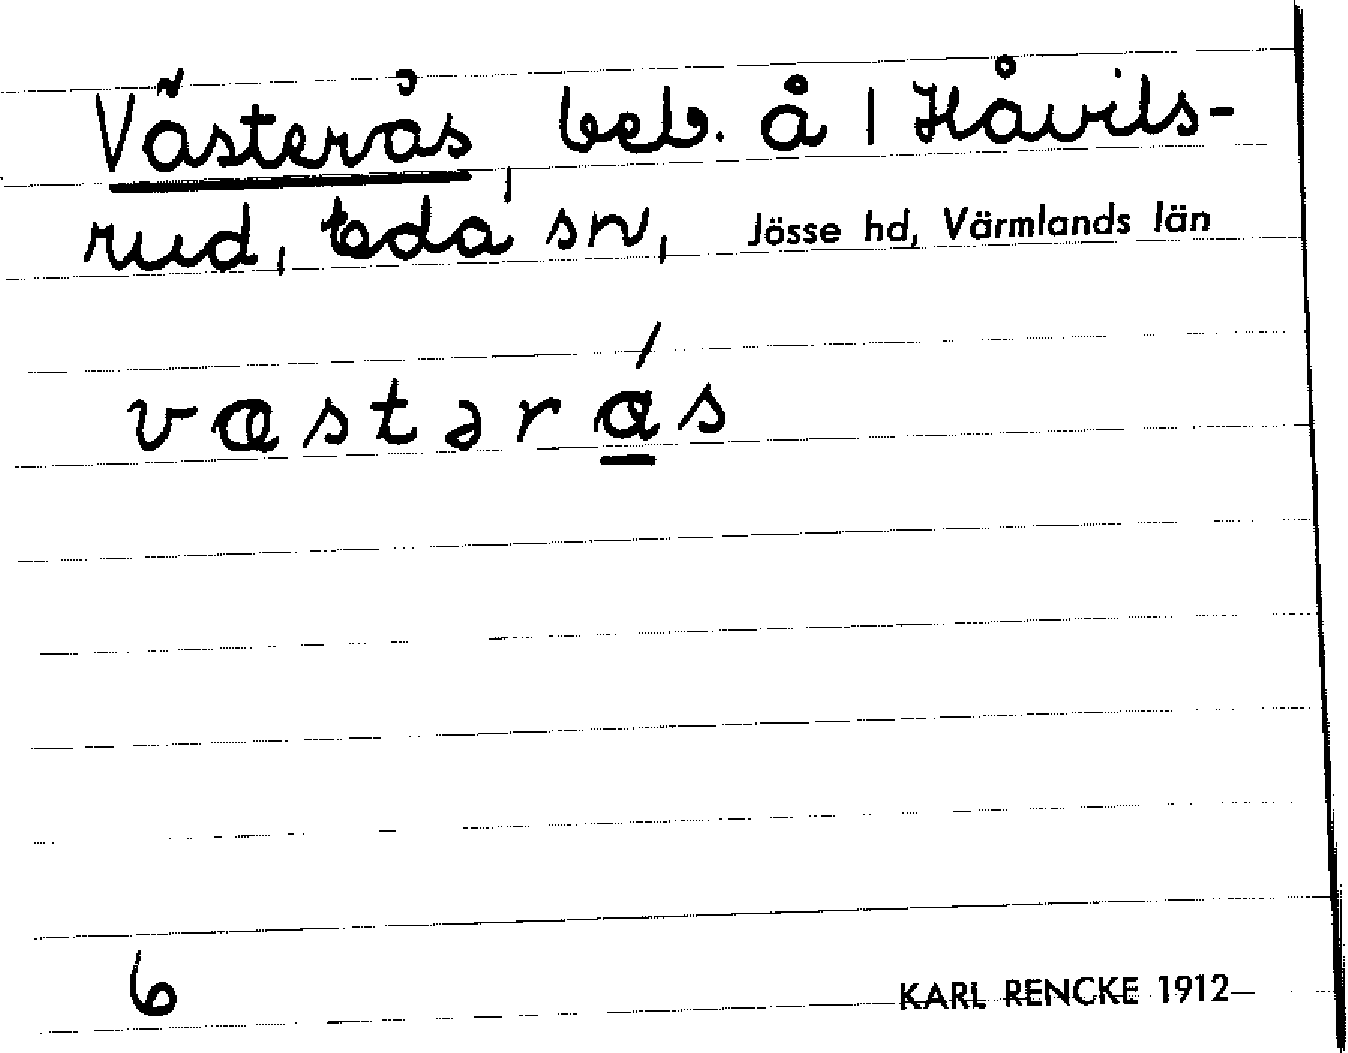 Västerås, beb. å 1 Håvils-
rud, Eda sn, Jösse hd, Värmlands län
væstərǻs
6 KARL RENCKE 1912–